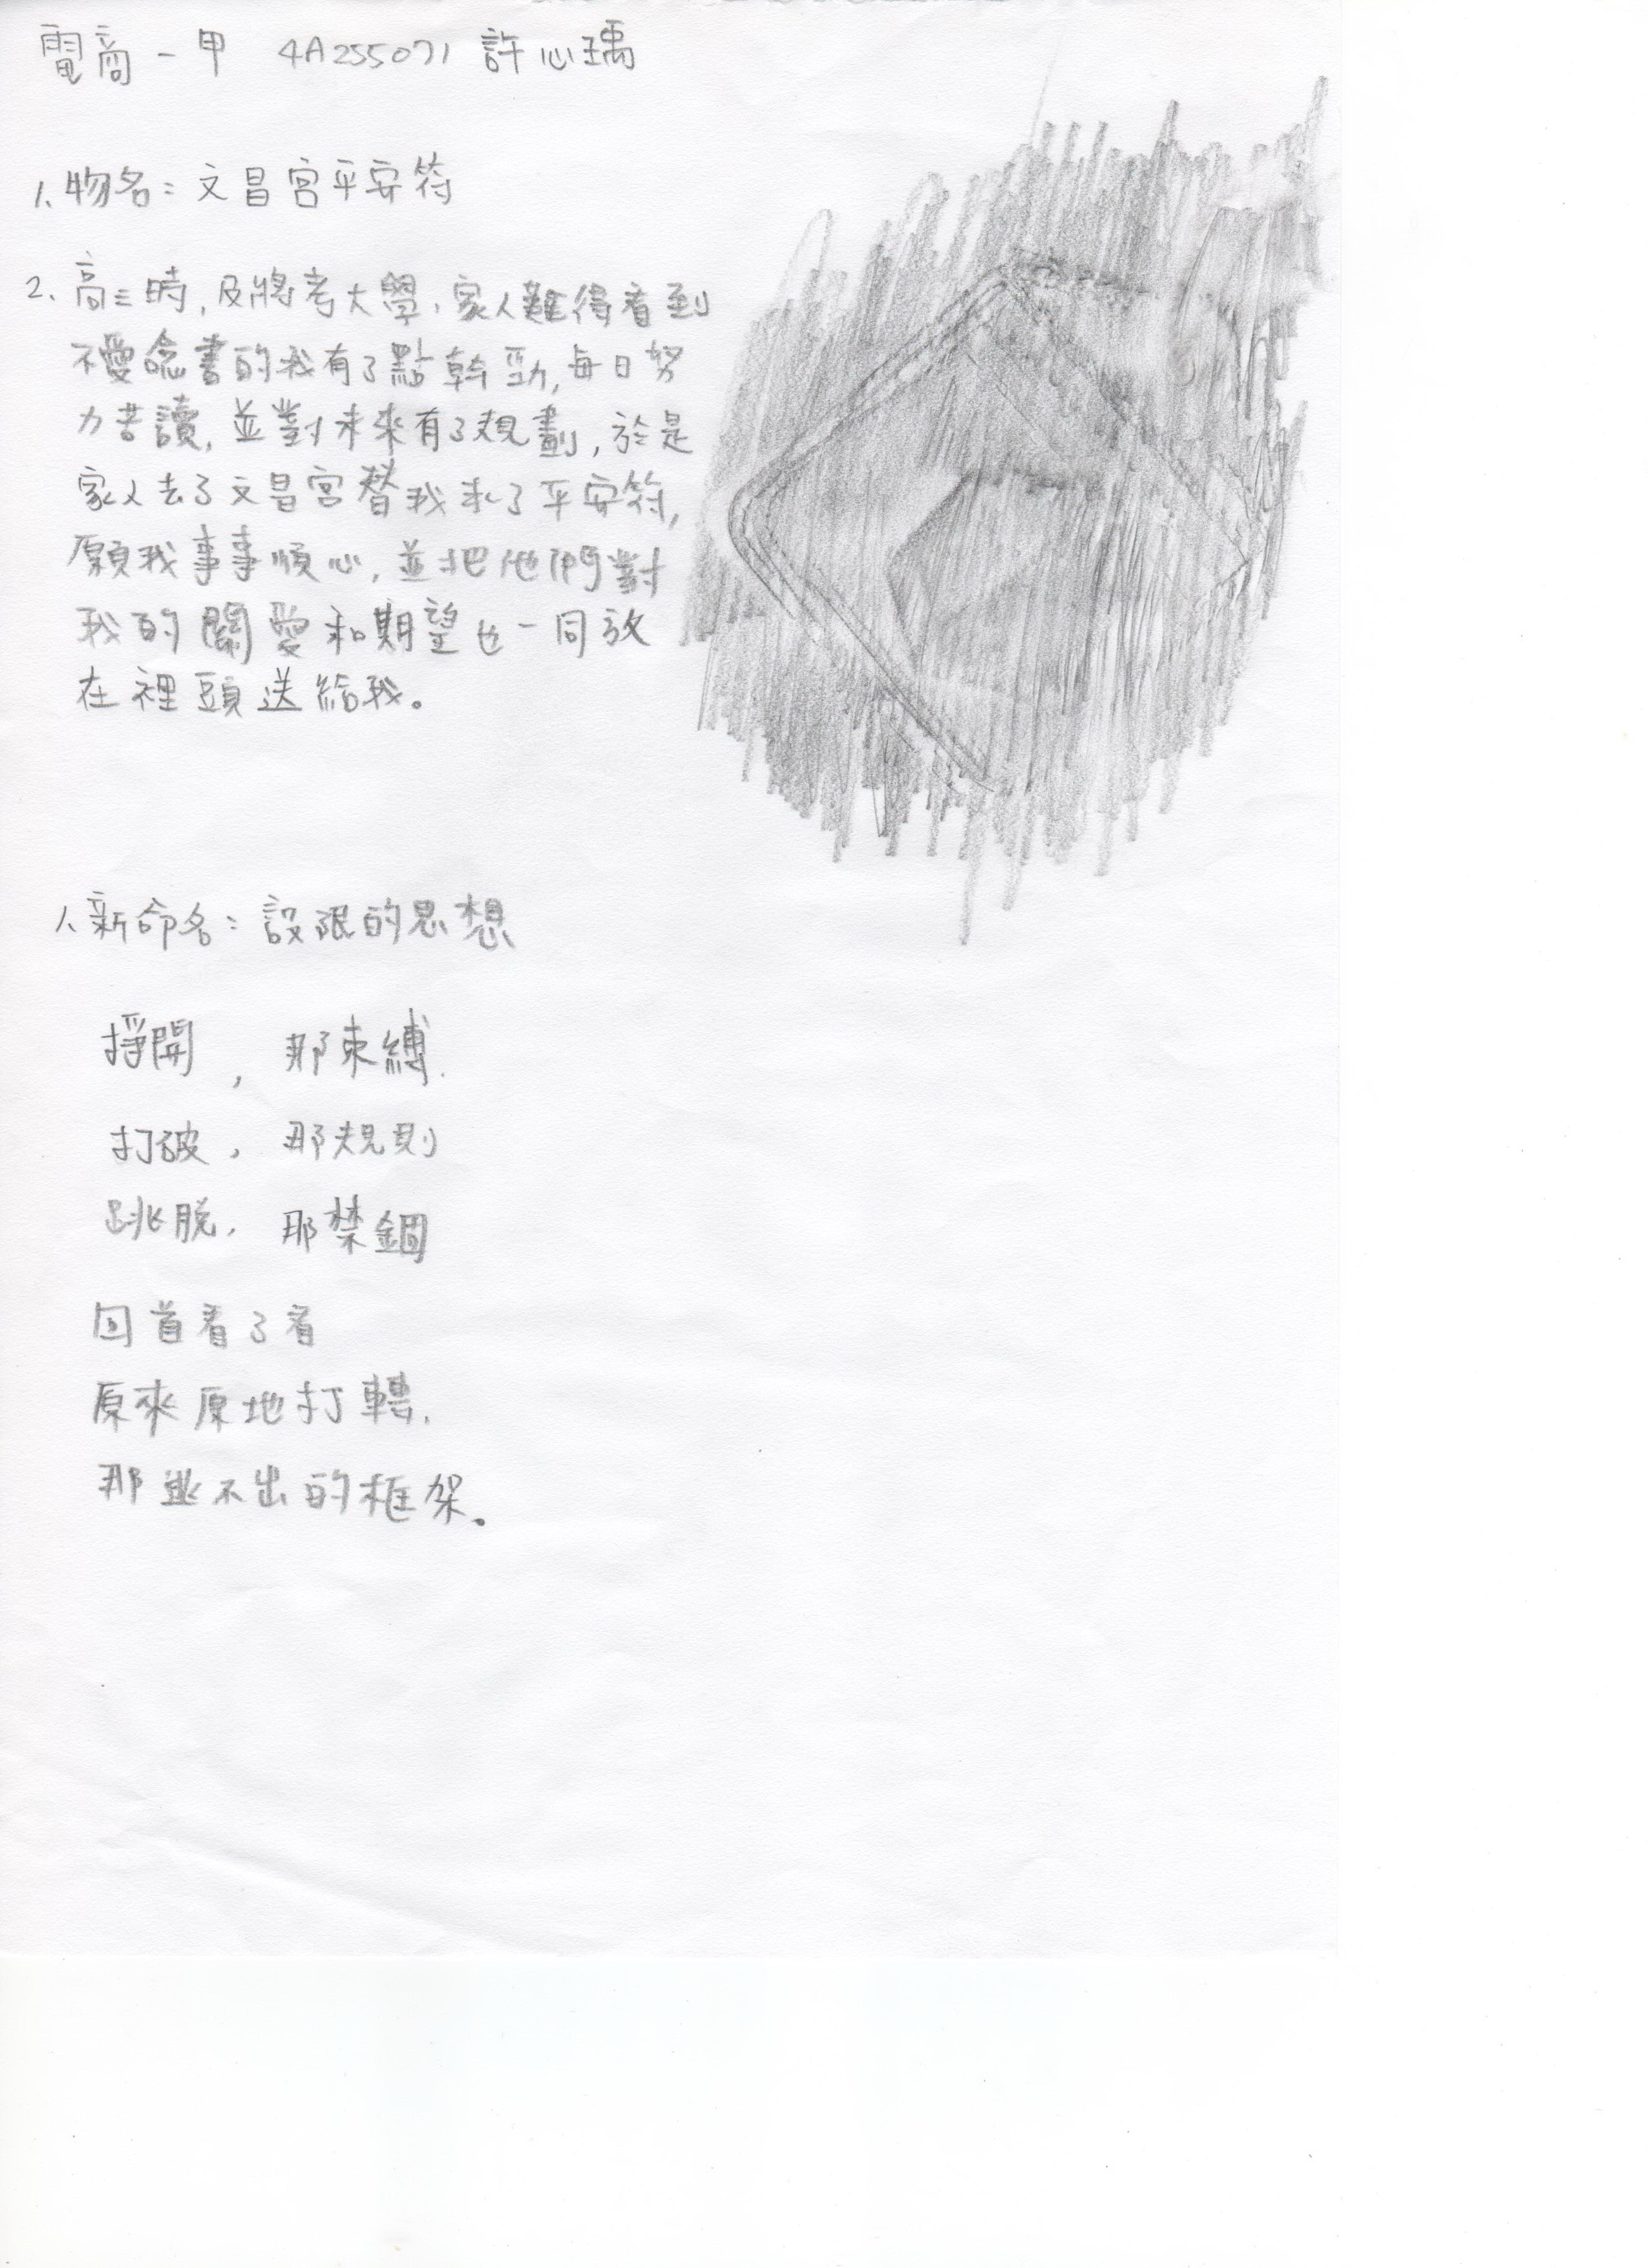 電商一甲 4A255071 許心瑀
1、物名：文昌宮平安符
2、高三時，及將考大學，家人難得看到
不愛唸書的我有了點幹勁，每日努
力苦讀，並對未來有了規劃，於是
家人去了文昌宮替我求了平安符，
願我事事順心，並把他們對
我的關愛和期望也一同放
在裡頭送給我。
1、新命名：設限的思想
掙開，那束縛.
打破，那規則
跳脫，那禁錮
回首看了看
原來原地打轉.
那逃不出的框架。